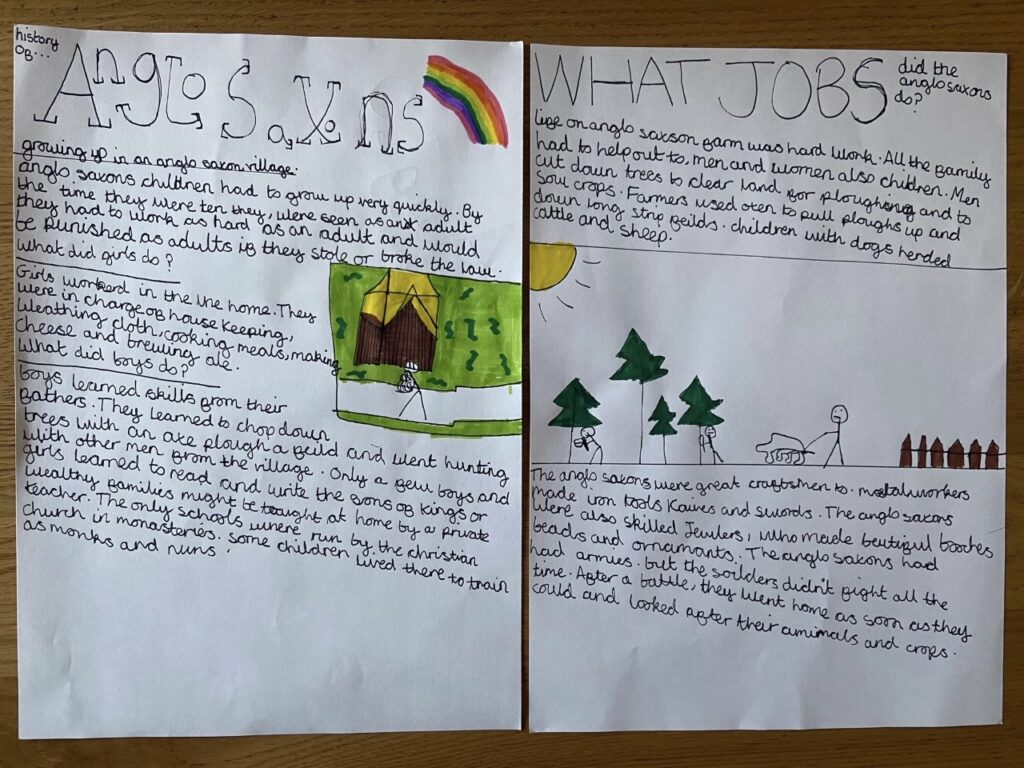 history
of...
Anglo Saxons
growing up in an anglo saxon village.
anglo saxons children had to grow up very quickly. By
the time they were ten they, were seen as an adult
they had to work as hard as an adult and would
be punished as adults if they stole or broke the law.
what did girls do?
Girls worked in the the home. They
were in charge of house keeping,
weathing cloth, cooking meals, making
cheese and brewing ale.
What did boys do?
boys learned skills from their
fathers. They learned to chop down
trees with an axe plough a feild and went hunting
with other men from the village. Only a few boys and
girls learned to read and write the sons of kings or
wealthy families might be taught at home by a private
teacher. The only schools where run by the christian
church in monasteries. some children lived there to train
as monks and nuns.
WHAT JOBS
did the
anglo saxons
do?
life on anglo saxson farm was hard work. All the family
had to help out to, men and women also children. Men
cut down trees to clear land for ploughing and to
sow crops. Farmers used oxen to pull ploughs up and
down long strip feilds. children with dogs herded
cattle and sheep.
The anglo saxons were great craftsmen to. metalworkers
made iron tools Knives and swords. The anglo saxons
were also skilled Jewlers, who made beutiful booches
beads and ornamants. The anglo saxons had
had armies. but the soilders didn't fight all the
time. After a battle, they went home as soon as they
could and looked after their amimals and crops.